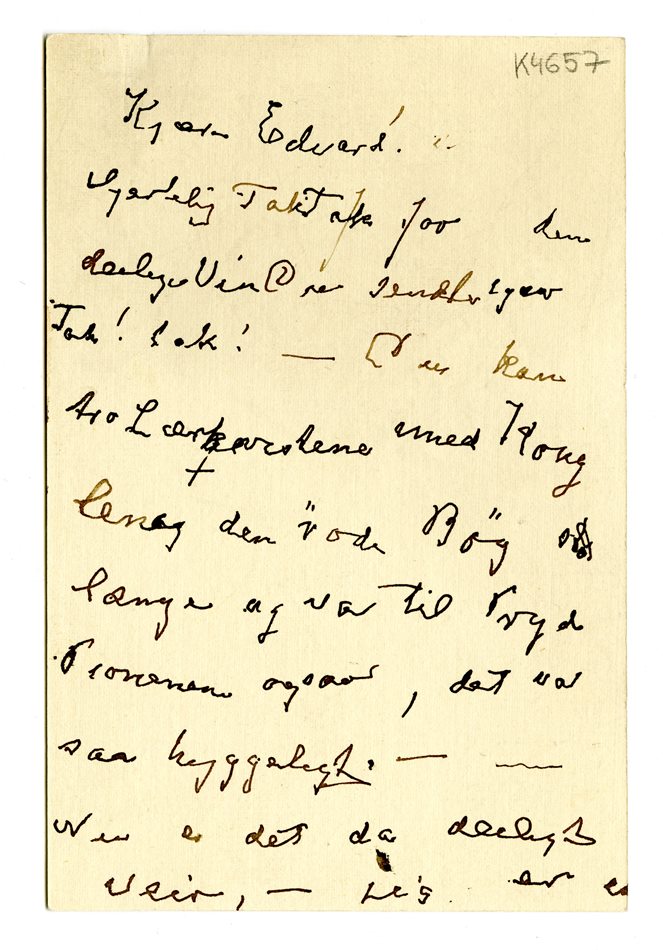 K4657
Kjære Edvard!
Hjertelig Tak Tak for den
deilige Vin Du sendte igaar
Tak! tak! — Du kan
tro Lærkegrenene med Kong
lene og den "röde Bög"
længe og var til Pryd
Pionenene ogsaa, det var
saa hyggeligt. — —
Nu er det da deiligt
Veir, — er